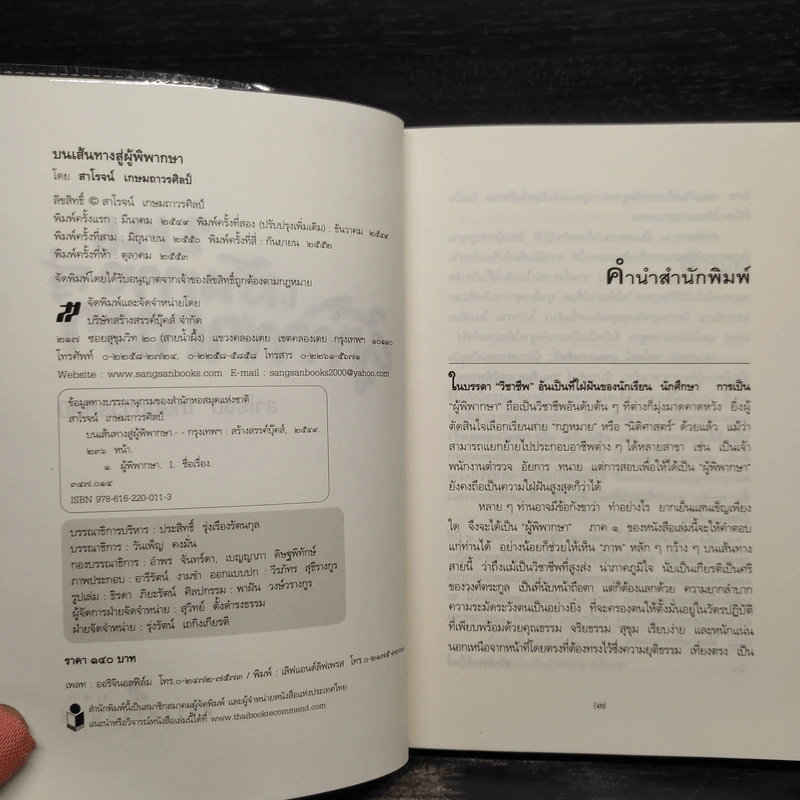 บนเส้นทางสู่ผู้พิพากษา
โดย สาโรจน์ เกษมถาวรศิลป์
ลิขสิทธิ์ © สาโรจน์ เกษมถาวรศิลป์
พิมพ์ครั้งแรก : มีนาคม ๒๕๔๙ พิมพ์ครั้งที่สอง (ปรับปรุงเพิ่มเติม) : ธันวาคม ๒๕๔๙
พิมพ์ครั้งที่สาม : มิถุนายน ๒๕๕๐ พิมพ์ครั้งที่สี่ : กันยายน ๒๕๕๒
พิมพ์ครั้งที่ห้า : ตุลาคม ๒๕๕๓
จัดพิมพ์โดยได้รับอนุญาตจากเจ้าของลิขสิทธิ์ถูกต้องตามกฎหมาย
จัดพิมพ์และจัดจำหน่ายโดย
บริษัทสร้างสรรค์บุ๊คส์ จำกัด
๒๑๗ ซอยสุขุมวิท ๒๐ (สายน้ำผึ้ง) แขวงคลองเตย เขตคลองเตย กรุงเทพฯ ๑๐๑๑๐
โทรศัพท์ ๐-๒๒๕๘-๒๗๒๔, ๐-๒๒๕๘-๕๘๕๘ โทรสาร ๐-๒๒๖๑-๖๐๗๑
Website : www.sangsanbooks.com E-mail : sangsanbooks2000@yahoo.com
ข้อมูลทางบรรณานุกรมของสำนักหอสมุดแห่งชาติ
สาโรจน์ เกษมถาวรศิลป์.
บนเส้นทางสู่ผู้พิพากษา.- - กรุงเทพฯ : สร้างสรรค์บุ๊คส์, ๒๕๔๙.
๒๓๖ หน้า.
๑. ผู้พิพากษา. I. ชื่อเรื่อง.
๓๔๗.๐๑๔
ISBN 978-616-220-011-3
บรรณาธิการบริหาร : ประสิทธิ์ รุ่งเรืองรัตนกุล
บรรณาธิการ : วันเพ็ญ คงมั่น
กองบรรณาธิการ : อำพร จันทร์ดา, เบญญาภา ดิษฐพิทักษ์
ภาพประกอบ : อารีรัตน์ งามขำ ออกแบบปก : วีรภัทร สุธีรางกูร
รูปเล่ม : ธิรดา ภิยะรัตน์ ศิลปกรรม : พาฝัน วงษ์วรางกูร
ผู้จัดการฝ่ายจัดจำหน่าย : สุวิทย์ ตั้งดำรงธรรม
ฝ่ายจัดจำหน่าย : รุ่งรัตน์ เถกิงเกียรติ
ราคา ๑๔๐ บาท
เพลท : ออริจินอลฟิล์ม โทร.๐-๒๔๗๒-๗๕๗๓ / พิมพ์ : เลิฟแอนด์ลิฟเพรส
สำนักพิมพ์นี้เป็นสมาชิกสมาคมผู้จัดพิมพ์ และผู้จำหน่ายหนังสือแห่งประเทศไทย
แนะนำหรือวิจารณ์หนังสือเล่มนี้ได้ที่ www.thaibookrecommend.com
คำนำสำนักพิมพ์
ในบรรดา “วิชาชีพ” อันเป็นที่ใฝ่ฝันของนักเรียน นักศึกษา การเป็น
“ผู้พิพากษา” ถือเป็นวิชาชีพอันดับต้น ๆ ที่ต่างก็มุ่งมาดคาดหวัง ยิ่งผู้
ตัดสินใจเลือกเรียนสาย “กฎหมาย” หรือ “นิติศาสตร์” ด้วยแล้ว แม้ว่า
สามารถแยกย้ายไปประกอบอาชีพต่าง ๆ ได้หลายสาขา เช่น เป็นเจ้า
พนักงานตำรวจ อัยการ ทนาย แต่การสอบเพื่อให้ได้เป็น “ผู้พิพากษา”
ยังคงถือเป็นความใฝ่ฝันสูงสุดก็ว่าได้
หลาย ๆ ท่านอาจมีข้อกังขาว่า ทำอย่างไร ยากเย็นแสนเข็ญเพียง
ใด จึงจะได้เป็น “ผู้พิพากษา” ภาค ๑ ของหนังสือเล่มนี้จะให้คำตอบ
แก่ท่านได้ อย่างน้อยก็ช่วยให้เห็น “ภาพ” หลัก ๆ กว้าง ๆ บนเส้นทาง
สายนี้ ว่าถึงแม้เป็นวิชาชีพที่สูงส่ง น่าภาคภูมิใจ นับเป็นเกียรติเป็นศรี
ของวงศ์ตระกูล เป็นที่นับหน้าถือตา แต่ก็ต้องแลกด้วย ความยากลำบาก
ความระมัดระวังตนเป็นอย่างยิ่ง ที่จะครองตนให้ตั้งมั่นอยู่ในวัตรปฏิบัติ
ที่เพียบพร้อมด้วยคุณธรรม จริยธรรม สุขุม เรียบง่าย และหนักแน่น
นอกเหนือจากหน้าที่โดยตรงที่ต้องทรงไว้ซึ่งความยุติธรรม เที่ยงตรง เป็น
(๓)